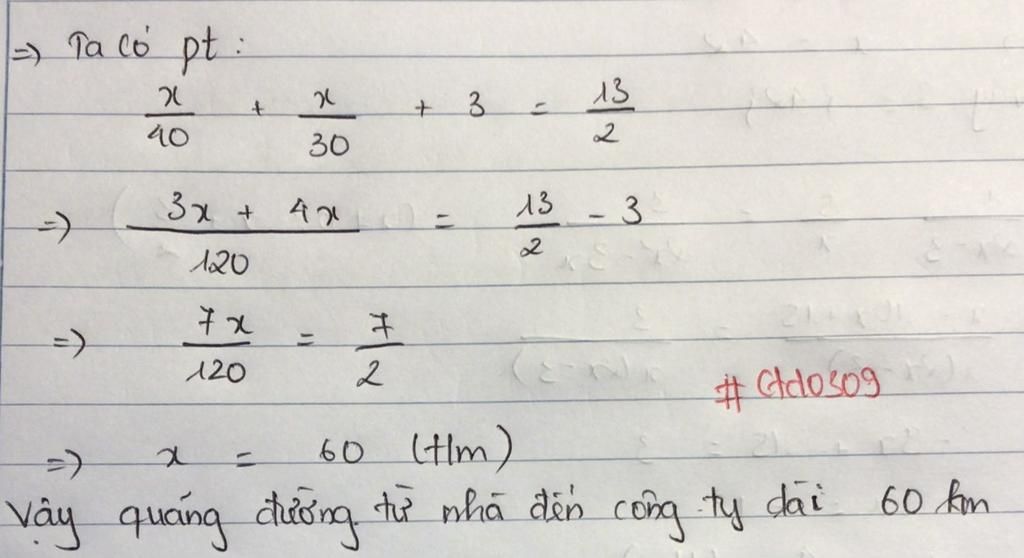 => Ta có pt:
x/40 + x/30 + 3 = 13/2
=> (3x + 4x)/120 = 13/2 - 3
=> 7x/120 = 7/2
=> x = 60 (t/m)
Vậy quãng đường từ nhà đến công ty dài 60 km